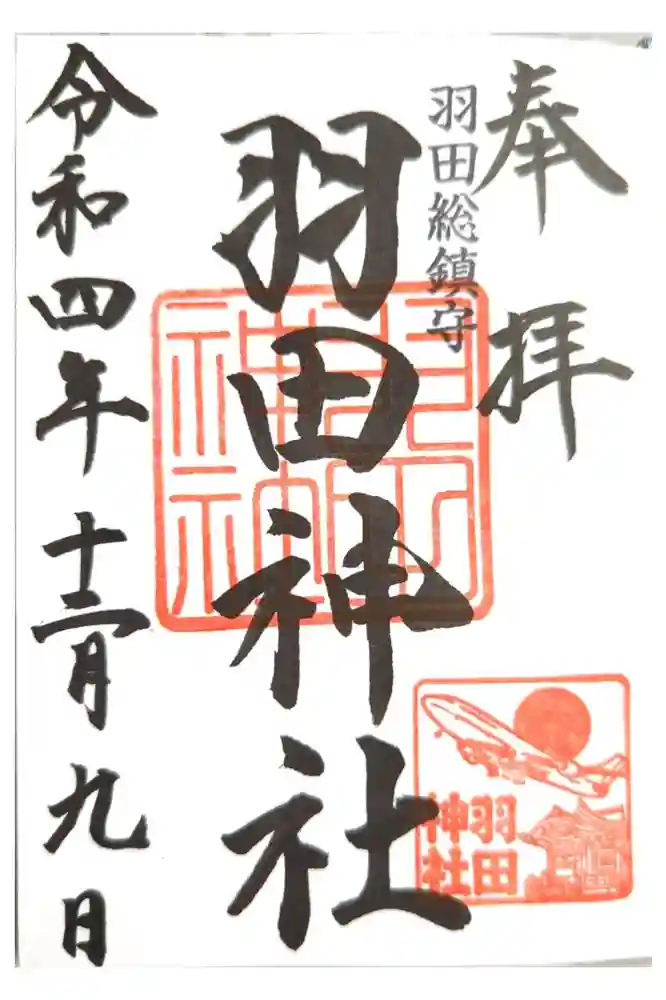 奉拝
羽田総鎮守
羽田神社
令和四年十二月九日
羽田
神社